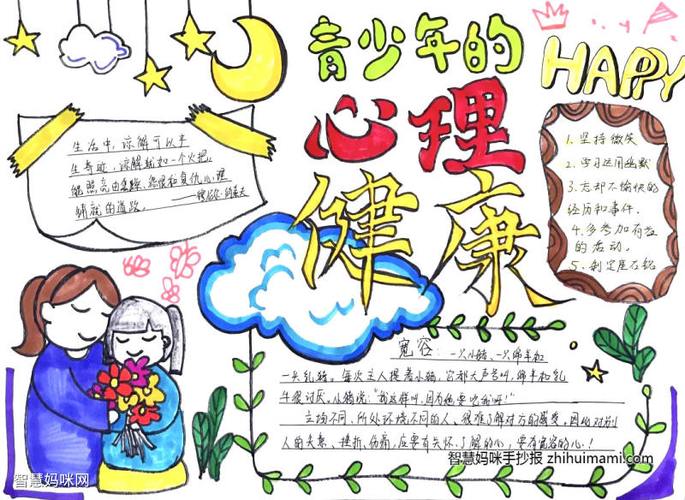 青少年的
心理
健康
HAPPY
生活中,谅解可以产
生奇迹,谅解就如一个火把,
能照亮由焦躁、怨恨和复仇心理
铺就的道路。
1. 坚持微笑
2. 学习运用幽默
3. 忘却不愉快的
经历和事件.
4. 多参加有益
的活动。
宽容:一只小猪、一只绵羊和
一头乳猪。每次主人捉着小猪,它都大声号叫,绵羊和乳
牛很讨厌。小猪说:
立场不同、所处环境不同的人,很难了解对方的感受,因此对别
人的失意、挫折、伤痛,应要有关怀、了解的心,要有宽容的心!
智慧妈咪手抄报 zhihuimami.com
智慧妈咪网